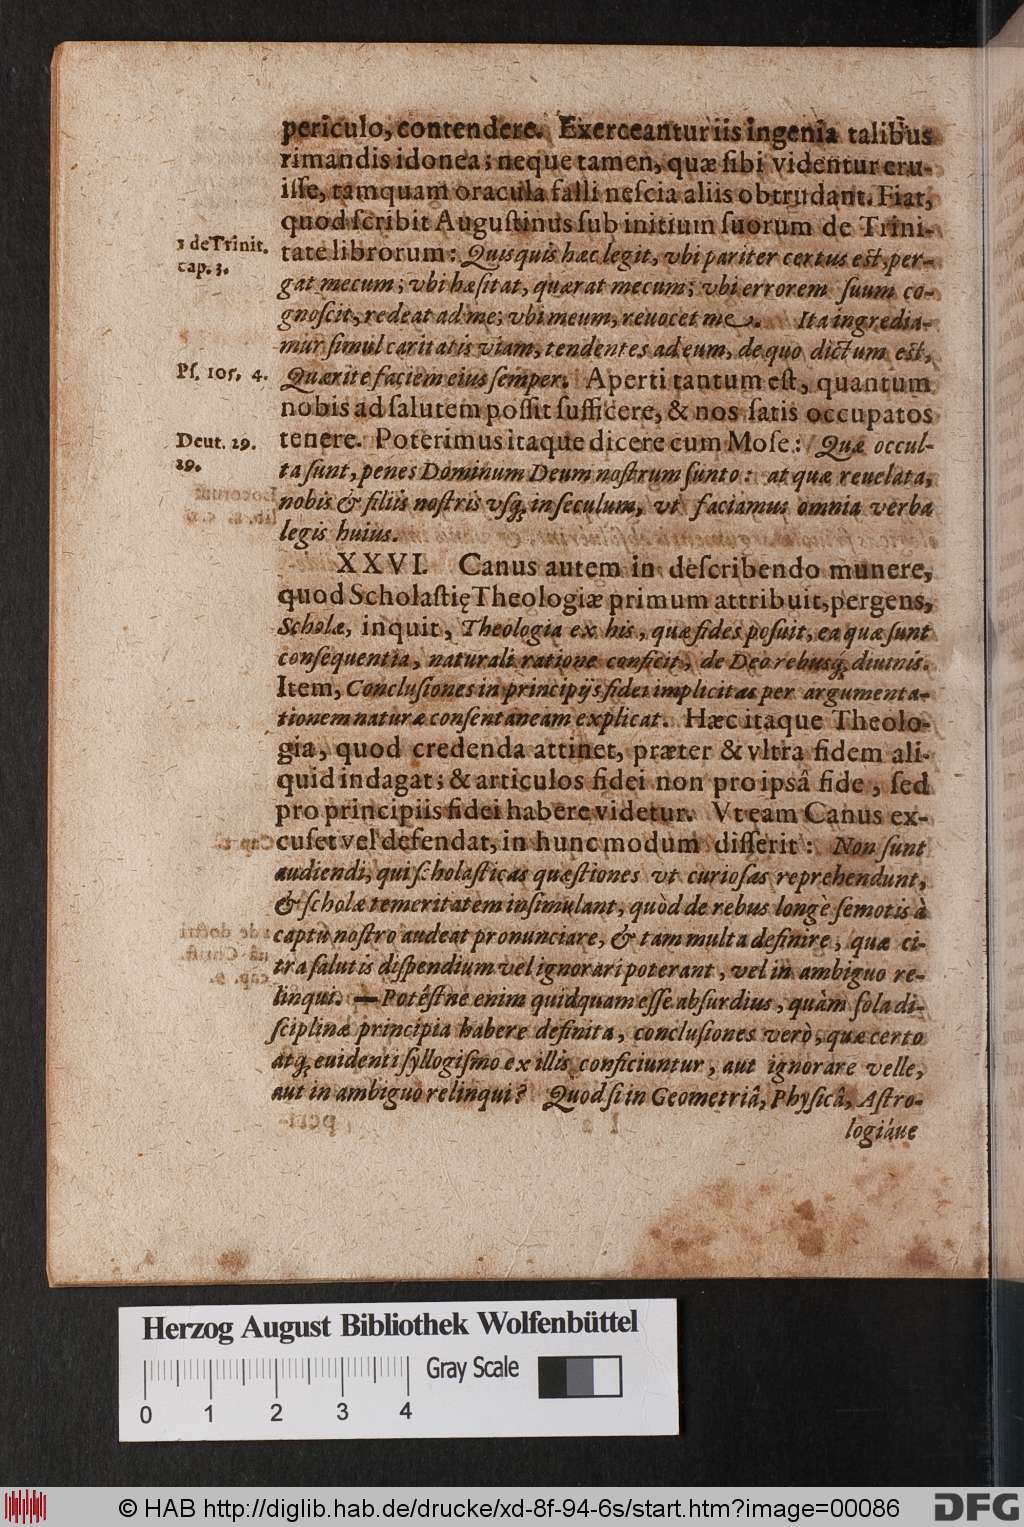 periculo, contendere. Exerceantur iis ingenia talibus
rimandis idonea; neque tamen, quæ sibi videntur eru-
isse, tamquam oracula falli nescia aliis obtrudant. Fiat,
quod scribit Augustinus sub initium suorum de Trini-
1 de Trinit.
cap. 3.
tate librorum: Quisquis hæc legit, vbi pariter certus est, per-
gat mecum; vbi hæsitat, quærat mecum; vbi errorem suum co-
gnoscit, redeat ad me; vbi meum, reuocet me. Ita ingredia-
mur simul caritatis viam, tendentes ad eum, de quo dictum est,
Ps. 105, 4.
Quærite faciem eius semper. Aperti tantum est, quantum
nobis ad salutem possit sufficere, & nos satis occupatos
Deut. 29.
29.
tenere. Poterimus itaque dicere cum Mose: Quæ occul-
ta sunt, penes Dominum Deum nostrum sunto: at quæ reuelata,
nobis & filiis nostris vsq; in seculum, vt faciamus omnia verba
legis huius.
XXVI. Canus autem in describendo munere,
quod Scholastię Theologiæ primum attribuit, pergens,
Scholæ, inquit, Theologia ex his, quæ fides posuit, ea quæ sunt
consequentia, naturali ratione conficit, de Deo rebusq; diuinis.
Item, Conclusiones in principijs fidei implicitas per argumenta-
tionem naturæ consentaneam explicat. Hæc itaque Theolo-
gia, quod credenda attinet, præter & vltra fidem ali-
quid indagat; & articulos fidei non pro ipsâ fide, sed
pro principiis fidei habere videtur. Vt eam Canus ex-
cuset vel defendat, in hunc modum disserit: Non sunt
audiendi, qui scholasticas quæstiones vt curiosas reprehendunt,
& scholæ temeritatem insimulant, quòd de rebus longè semotis à
captu nostro audeat pronunciare, & tam multa definire, quæ ci-
tra salutis dispendium vel ignorari poterant, vel in ambiguo re-
linqui. — Potéstne enim quidquam esse absurdius, quàm sola di-
sciplinæ principia habere definita, conclusiones verò, quæ certo
atq; euidenti syllogismo ex illis conficiuntur, aut ignorare velle,
aut in ambiguo relinqui? Quod si in Geometriâ, Physicâ, Astro-
logiáue
Herzog August Bibliothek Wolfenbüttel
Gray Scale
0 1 2 3 4
© HAB http://diglib.hab.de/drucke/xd-8f-94-6s/start.htm?image=00086
DFG